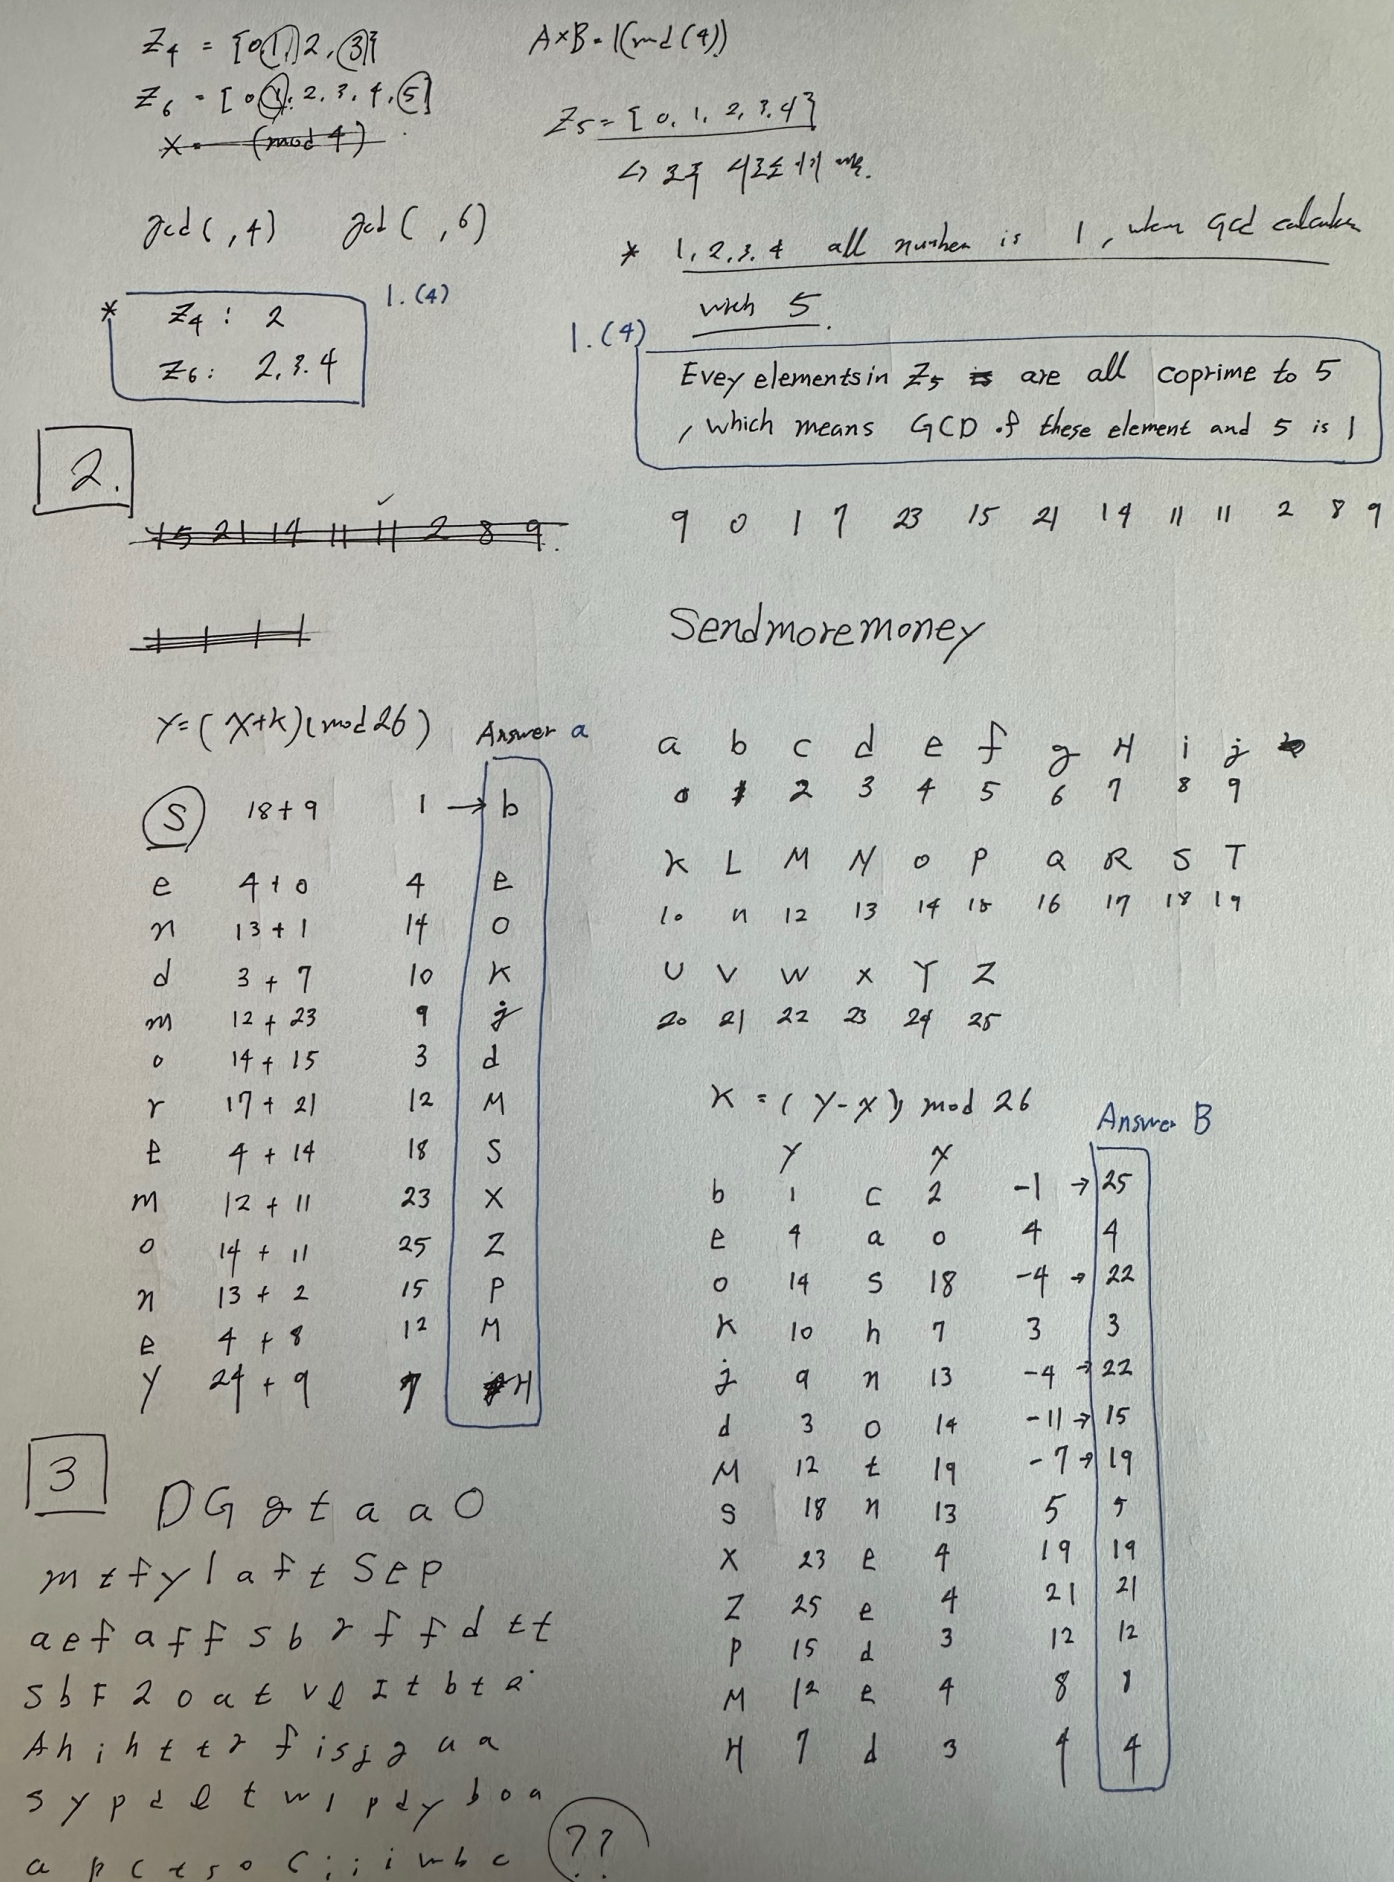 Z4 = {0, 1, 2, 3}
A×B = 1(mod (4))
Z6 = [0, 1, 2, 3, 4, 5]
X = (mod 4)
Z5 = [0, 1, 2, 3, 4}
↳ 모두 서로소
gcd( , 4) gcd( , 6)
* 1, 2, 3, 4 all number is 1, when Gcd
with 5.
* Z4 : 2
Z6 : 2, 3, 4
1. (4)
1. (4)
Evey elements in Z5 is are all coprime to 5
, which means GCD of these element and 5 is 1
2.
15 21 14 11 11 2 8 9.
9 0 1 7 23 15 21 14 11 11 2 8 9
Sendmoremoney
Y = (X+K)(mod 26) Answer a
S 18+9 1 → b
e 4+0 4 e
n 13+1 14 o
d 3+7 10 K
m 12+23 9 j
o 14+15 3 d
r 17+21 12 M
e 4+14 18 S
m 12+11 23 X
o 14+11 25 Z
n 13+2 15 P
e 4+8 12 M
Y 24+9 7 H
a b c d e f g H i j
0 1 2 3 4 5 6 7 8 9
K L M N O P Q R S T
10 11 12 13 14 15 16 17 18 19
U V W X Y Z
20 21 22 23 24 25
K = (Y-X), mod 26
Answer B
Y X
b 1 c 2 -1 → 25
e 4 a 0 4 4
o 14 S 18 -4 → 22
K 10 h 7 3 3
j 9 n 13 -4 → 22
d 3 o 14 -11 → 15
M 12 t 19 -7 → 19
S 18 n 13 5 5
X 23 e 4 19 19
Z 25 e 4 21 21
P 15 d 3 12 12
M 12 e 4 8 8
H 7 d 3 4 4
3
D G g t a a O
m t f y l a f t S e p
a e f a f f s b r f f d t t
S b F 2 o a t v l I t b t a
A h i h t t r f i s j g a a
s y p d l t w l p d y b o a
a p c t s o C i i i w b c ??